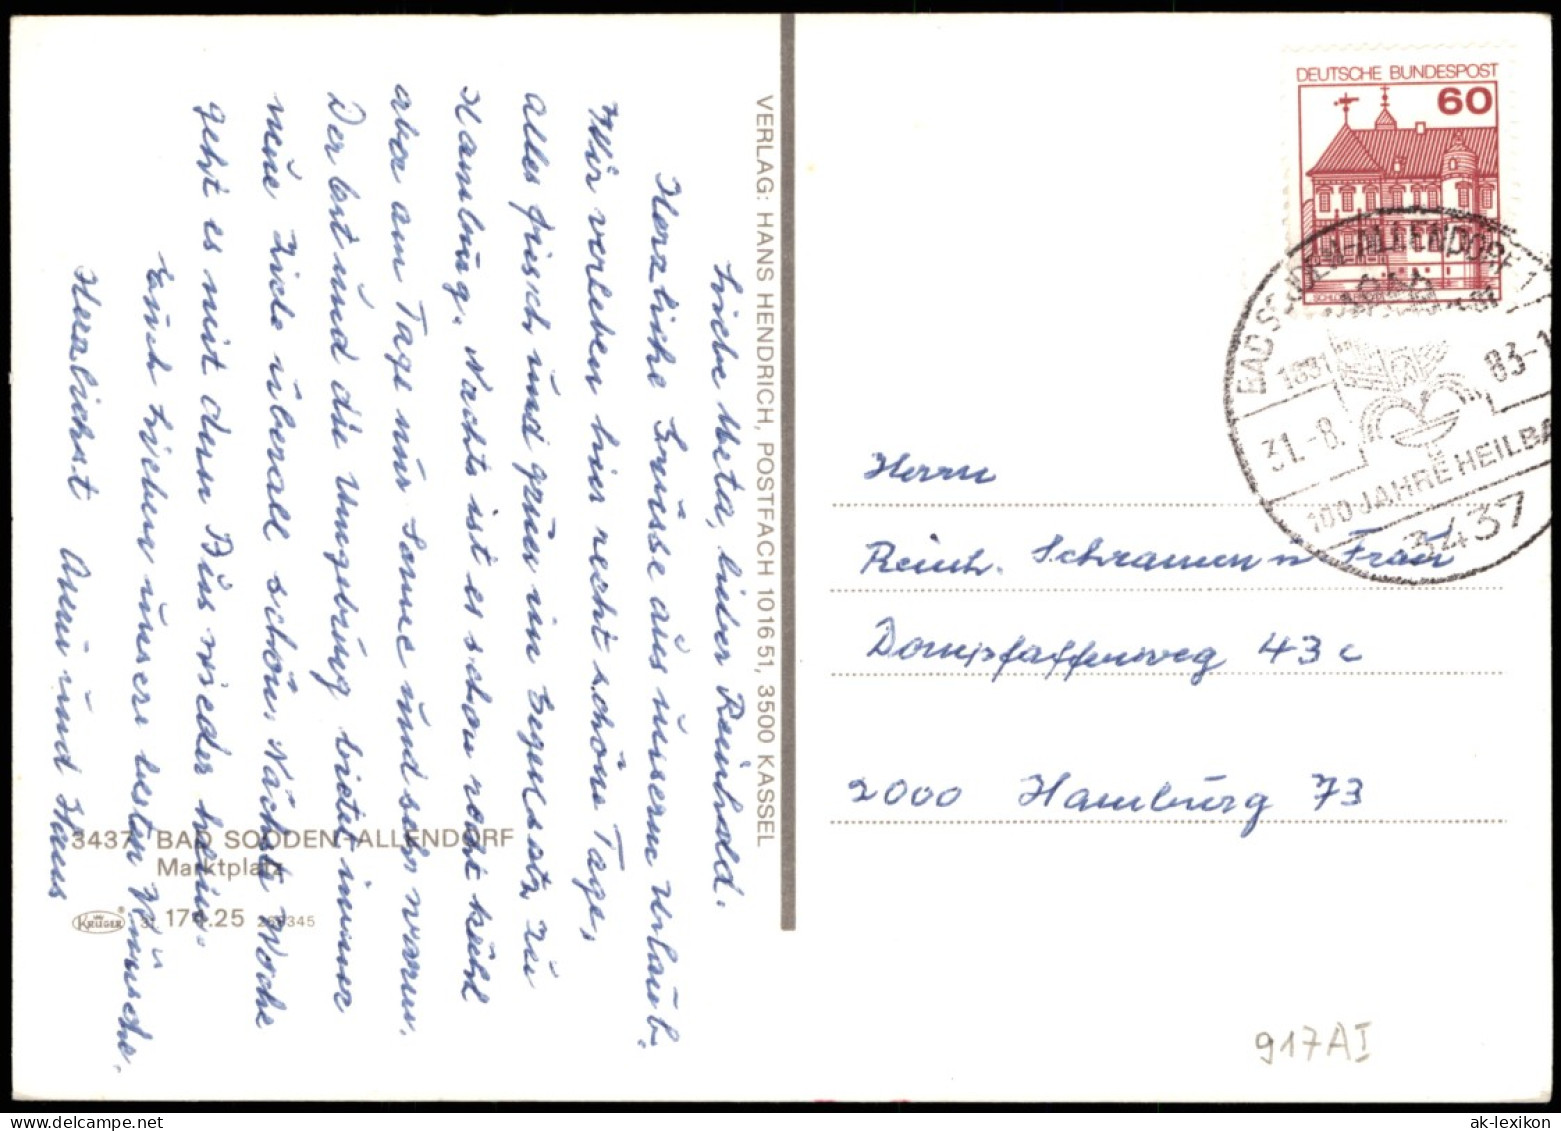 Liebe Meta, lieber Reinhold.
Herzliche Grüsse aus unserm Urlaub.
Wir verleben hier recht schöne Tage,
alles frisch und grün im Gegensatz zu
Hamburg. Nachts ist es schon recht kühl
aber am Tage nur Sonne und sehr warm.
Der Ort und die Umgebung bietet immer
neue Ziele überall schön. Nächste Woche
geht es mit dem Bus wieder heim.
Euch Lieben unsere besten Wünsche.
Herzlichst
und Hans
3437 BAD SOODEN-ALLENDORF
Marktplatz
KRÜGER
VERLAG: HANS HENDRICH, POSTFACH 1016 51, 3500 KASSEL
DEUTSCHE BUNDESPOST
60
BAD SOODEN-ALLENDORF 1
1881
31.-8.
83-1
100 JAHRE HEILBA
3437
Herrn
Reinh. Schramm u Frau
Dompfaffenweg 43 c
2000 Hamburg 73
917AI
ak-lexikon